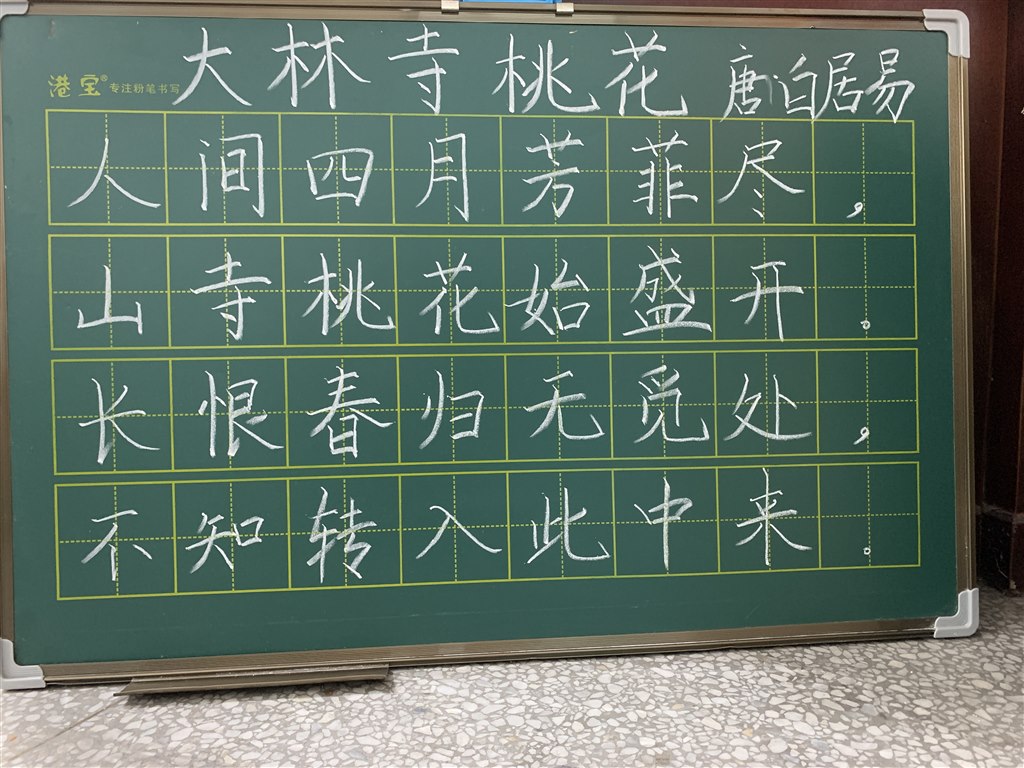 大林寺桃花 唐 白居易
港宝® 专注粉笔书写
人间四月芳菲尽，
山寺桃花始盛开。
长恨春归无觅处，
不知转入此中来。